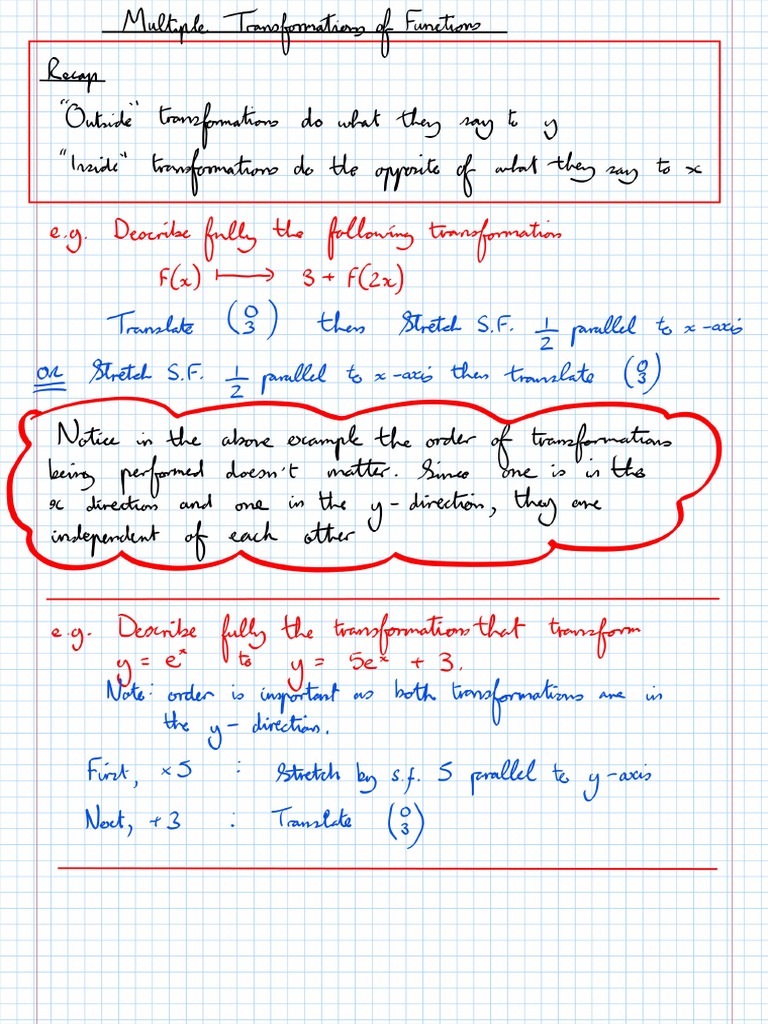 Multiple Transformations of Functions
Recap
"Outside" transformations do what they say to y
"Inside" transformations do the opposite of what they say to x
e.g. Describe fully the following transformation
f(x) ⟼ 3 + f(2x)
Translate (0 3) then Stretch S.F. 1/2 parallel to x-axis
OR Stretch S.F. 1/2 parallel to x-axis then translate (0 3)
Notice in the above example the order of transformations
being performed doesn't matter. Since one is in the
x direction and one in the y-direction, they are
independent of each other
e.g. Describe fully the transformations that transform
y = eˣ to y = 5eˣ + 3.
Note: order is important as both transformations are in
the y-direction.
First, ×5 : Stretch by s.f. 5 parallel to y-axis
Next, +3 : Translate (0 3)